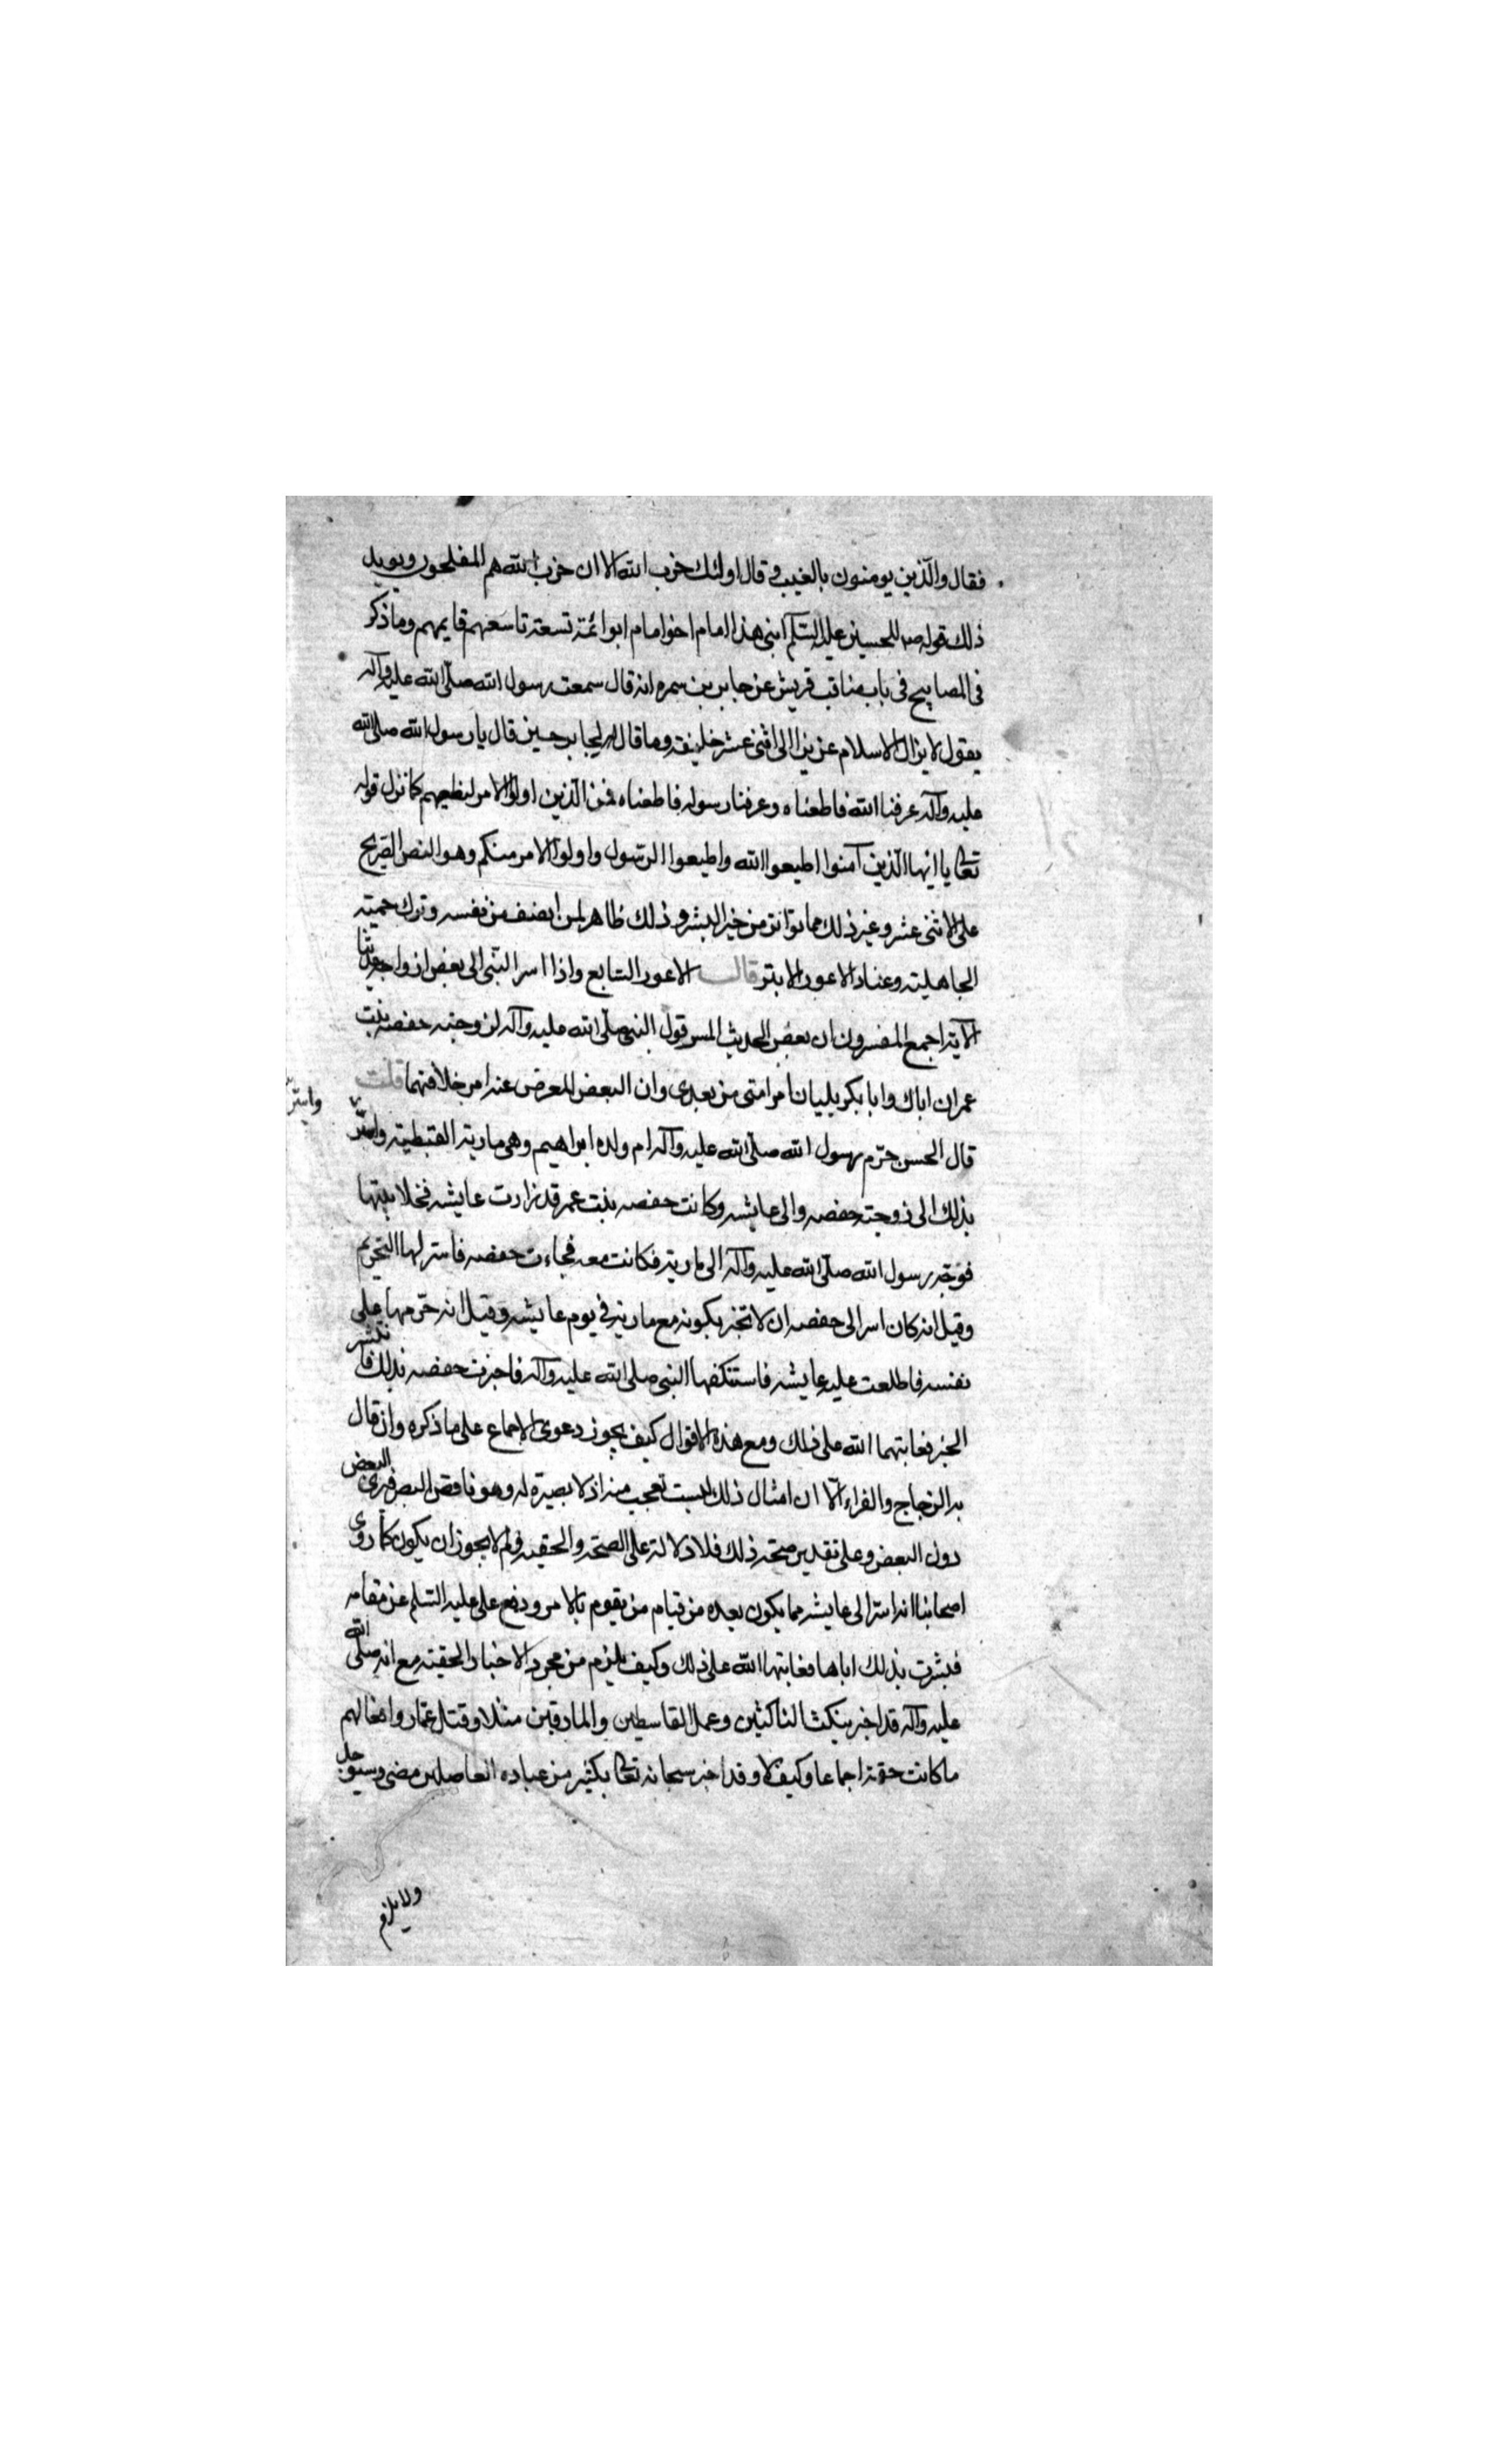 فقال والّذين يومنون بالغيب وقال اولئك حزب الله الا ان حزب الله هم المفلحون ويويد
ذلك قوله ص للحسين عليه السّلم ابنى هذا امام اخو امام ابو ائمة تسعة تاسعهم قايمهم وما ذكر
فى المصابيح فى باب مناقب قريش عن جابر بن سمره انه قال سمعت رسول الله صلّى الله عليه وآله
يقول لا يزال الاسلام عزيزا الى اثنى عشر خليفة وما قاله لجابر حين قال يا رسول الله صلى الله
عليه وآله عرفنا الله فاطعناه وعرفنا رسوله فاطعناه فمن الّذين اولوا الامر لنطيعهم كما نزل قوله
تعالى يا ايها الّذين آمنوا اطيعوا الله واطيعوا الرسول واولوا الامر منكم وهو النص الصّريح
على الاثنى عشر وغير ذلك مما تواتر من خير البشر وذلك ظاهر لمن انصف من نفسه وترك حميته
الجاهلية وعناد الاعور الابتر قال الاعور السّابع واذا اسر النّبى الى بعض ازواجه حديثا
الآية اجمع المفسرون ان بعض الحديث المسر قول النبى صلّى الله عليه وآله لزوجته حفصه بنت
عمر ان اباك وابا بكر يليان امر امتى من بعدى وان البعض المعرض عنه امر خلافتهما قلت
قال الحسن حرّم رسول الله صلّى الله عليه وآله ام ولده ابراهيم وهى مارية القبطية واسرّ
واسرّ
بذلك الى زوجته حفصه والى عايشه وكانت حفصه بنت عمر قد زارت عايشه فخلا بيتها
فوجّه رسول الله صلّى الله عليه وآله الى مارية فكانت معه فجاءت حفصه فاسر لها التحريم
وقيل انه كان اسر الى حفصه ان لا تخبر بكونه مع مارية فى يوم عايشه وقيل انه حرّمها على
نفسه فاطلعت عليه عايشه فاستكفها النبى صلى الله عليه وآله فاخبرت حفصه بذلك فانتشر
الخبر فعاتبهما الله على ذلك ومع هذه الاقوال كيف يجوز دعوى الاجماع على ما ذكره وان قال
به الزجاج والفراء الّا ان امثال ذلك ليست تعجب منه اذ لا بصيرة له وهو ناقص البصر فيرى البعض
دون البعض وعلى تقدير صحة ذلك فلا دلالة على الصحة والحقية ولم لا يجوز ان يكون كما روى
اصحابنا انه اسرّ الى عايشه مما يكون بعده من قيام من يقوم بالامر ودفع على عليه السّلم عن مقامه
فبشرت بذلك اباها فعاتبها الله على ذلك وكيف يلزم من مجرد الاخبار الحقية مع انه صلى الله
عليه وآله قد اخبر بنكث الناكثين وعمل القاسطين والمارقين مثلا وقتل عمّار وافعالهم
ما كانت حقة اجماعا وكيف لا وقد اخبر سبحانه تعالى بكثير من عباده العاصلين مضى وسيوجد
ولا يلزم